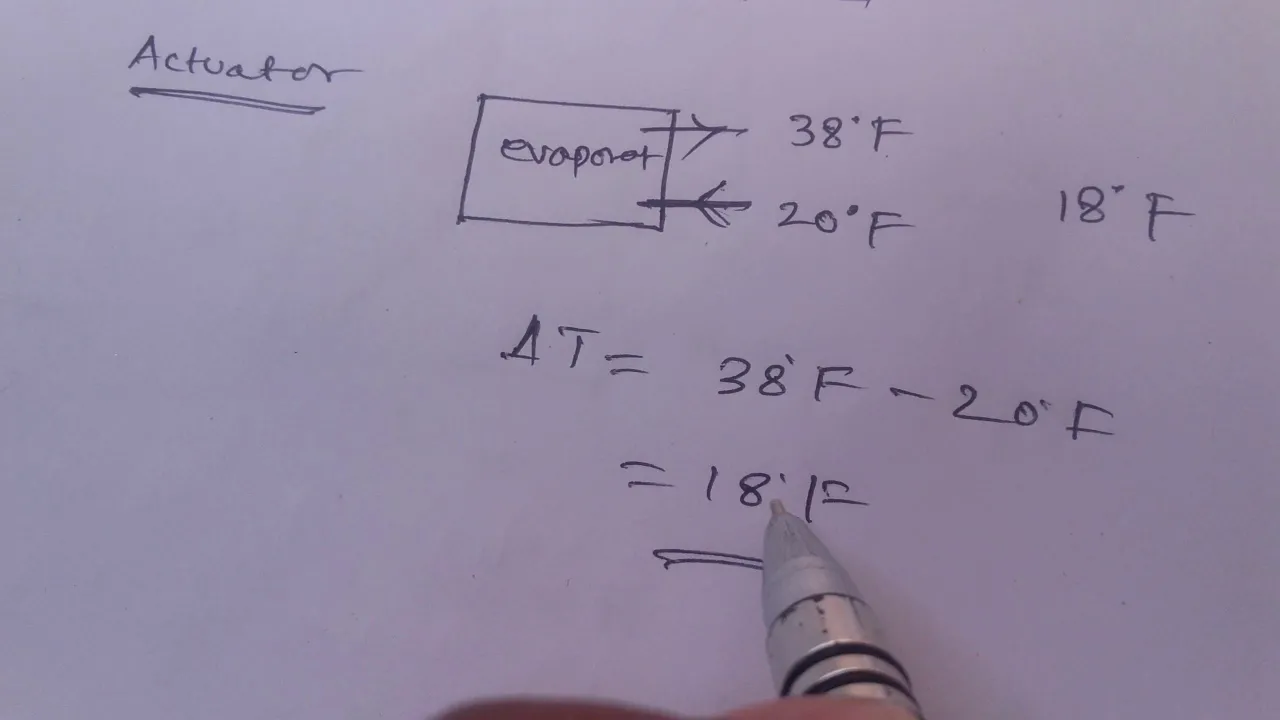 Actuator
evaporat
38°F
20°F
18°F
ΔT = 38°F - 20°F
= 18°F